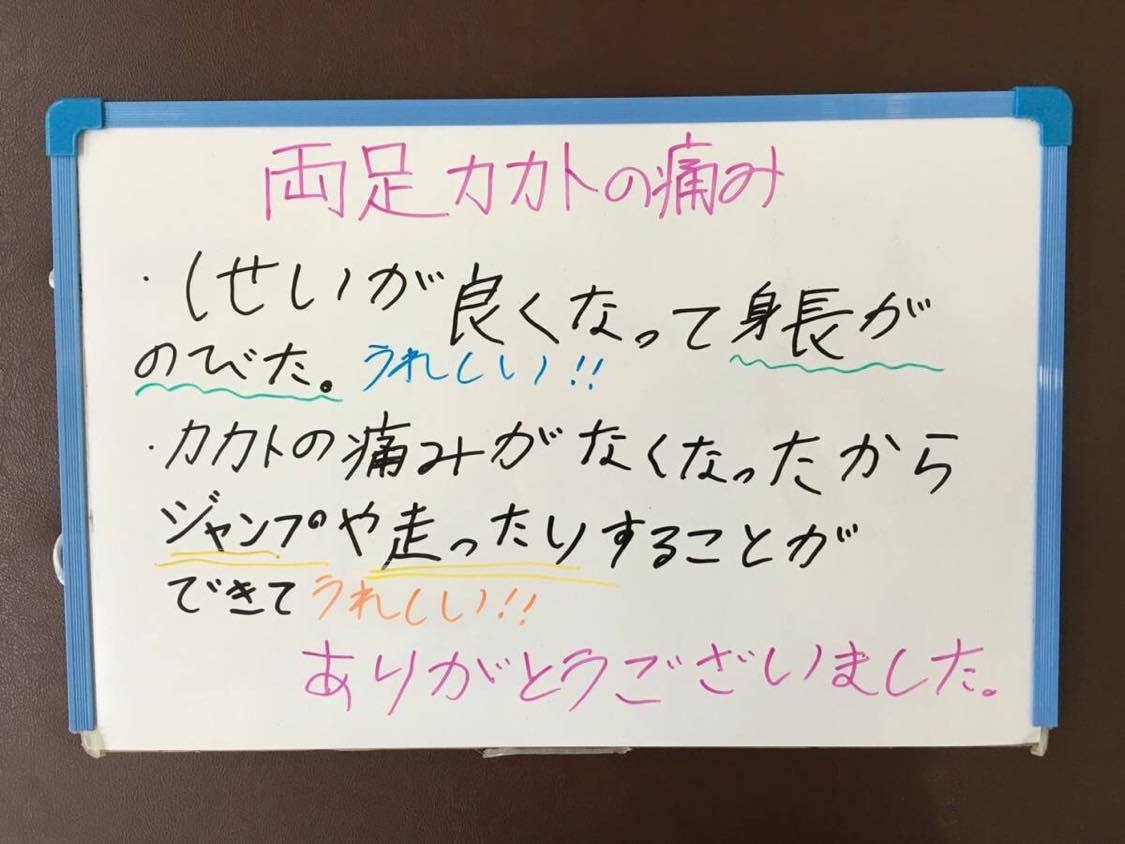 両足カカトの痛み
・しせいが良くなって身長が
のびた。うれしい!!
・カカトの痛みがなくなったから
ジャンプや走ったりすることが
できてうれしい!!
ありがとうございました。